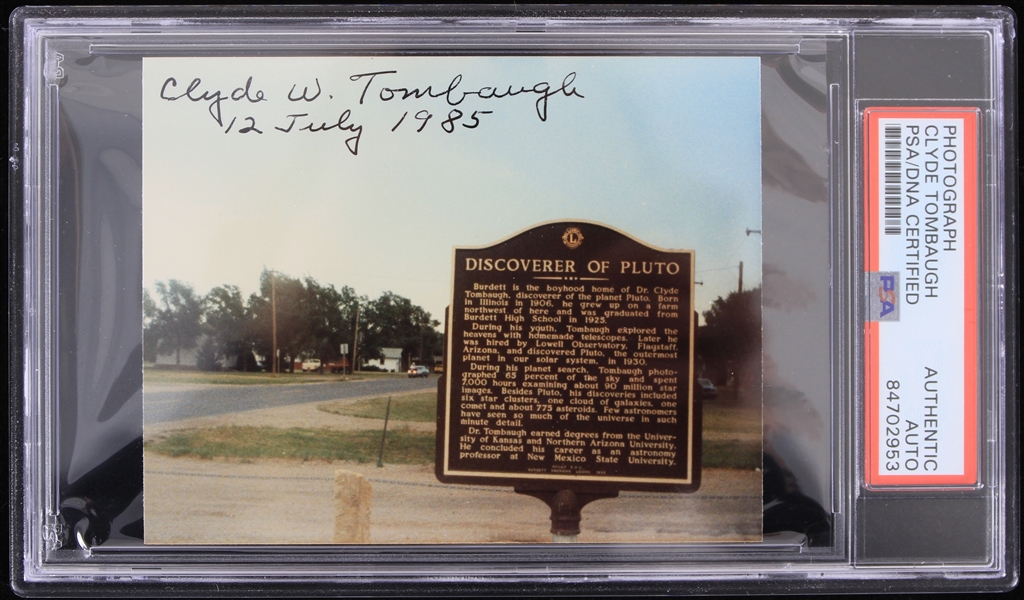 Clyde W. Tombaugh
12 July 1985
L
DISCOVERER OF PLUTO
Burdett is the boyhood home of Dr. Clyde
Tombaugh, discoverer of the planet Pluto. Born
in Illinois in 1906, he grew up on a farm
northwest of here and was graduated from
Burdett High School in 1925.
During his youth, Tombaugh explored the
heavens with homemade telescopes. Later he
was hired by Lowell Observatory, Flagstaff,
Arizona, and discovered Pluto, the outermost
planet in our solar system, in 1930.
During his planet search, Tombaugh photo-
graphed 65 percent of the sky and spent
7,000 hours examining about 90 million star
images. Besides Pluto, his discoveries included
six star clusters, one cloud of galaxies, one
comet and about 775 asteroids. Few astronomers
have seen so much of the universe in such
minute detail.
Dr. Tombaugh earned degrees from the Univer-
sity of Kansas and Northern Arizona University.
He concluded his career as an astronomy
professor at New Mexico State University.
PHOTOGRAPH
CLYDE TOMBAUGH
PSA/DNA CERTIFIED
PSA
AUTHENTIC
AUTO
84702953